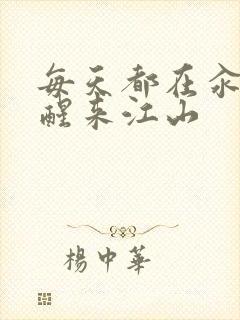 每天都在汆
醒来江山
楊中華